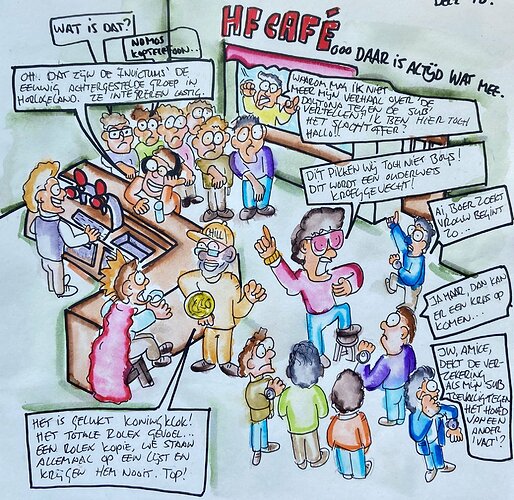 DEEL 10.
HF CAFÉ
... DAAR IS ALTIJD WAT MEE.
WAT IS DAT?
NOMOS
KOPTELEFOON...
OH. DAT ZIJN DE INVICTUS' DE
EEUWIG ACHTERGESTELDE GROEP IN
HORLOGELAND. ZE INTERFEREN LASTIG.
WAAROM MAG IK NIET
MEER MIJN VERHAAL OVER DE
DAYTONA TEGEN DE SUB
VERTELLEN?! IK BEN HIER TOCH
HET SLACHTOFFER?
HALLO!!
DIT PIKKEN WIJ TOCH NIET BOYS!
DIT WORDT EEN OUDERWETS
KROEGGEVECHT!
AI, BOER ZOEKT
VROUW BEGINT
ZO...
JA MAAR, DAN KAN
ER EEN KRAS OP
KOMEN...
JW, AMICE,
DEKT DE VER-
ZEKERING
ALS MIJN SUB
TOEVALLIG TEGEN
HET HOOFD
VAN EEN
ANDER
VALT?
CHILL
HET IS GELUKT KONINGKLOK!
HET TOTALE ROLEX GEVOEL...
EEN ROLEX KOPIE, WE STAAN
ALLEMAAL OP EEN LIJST EN
KRIJGEN HEM NOOIT. TOP!